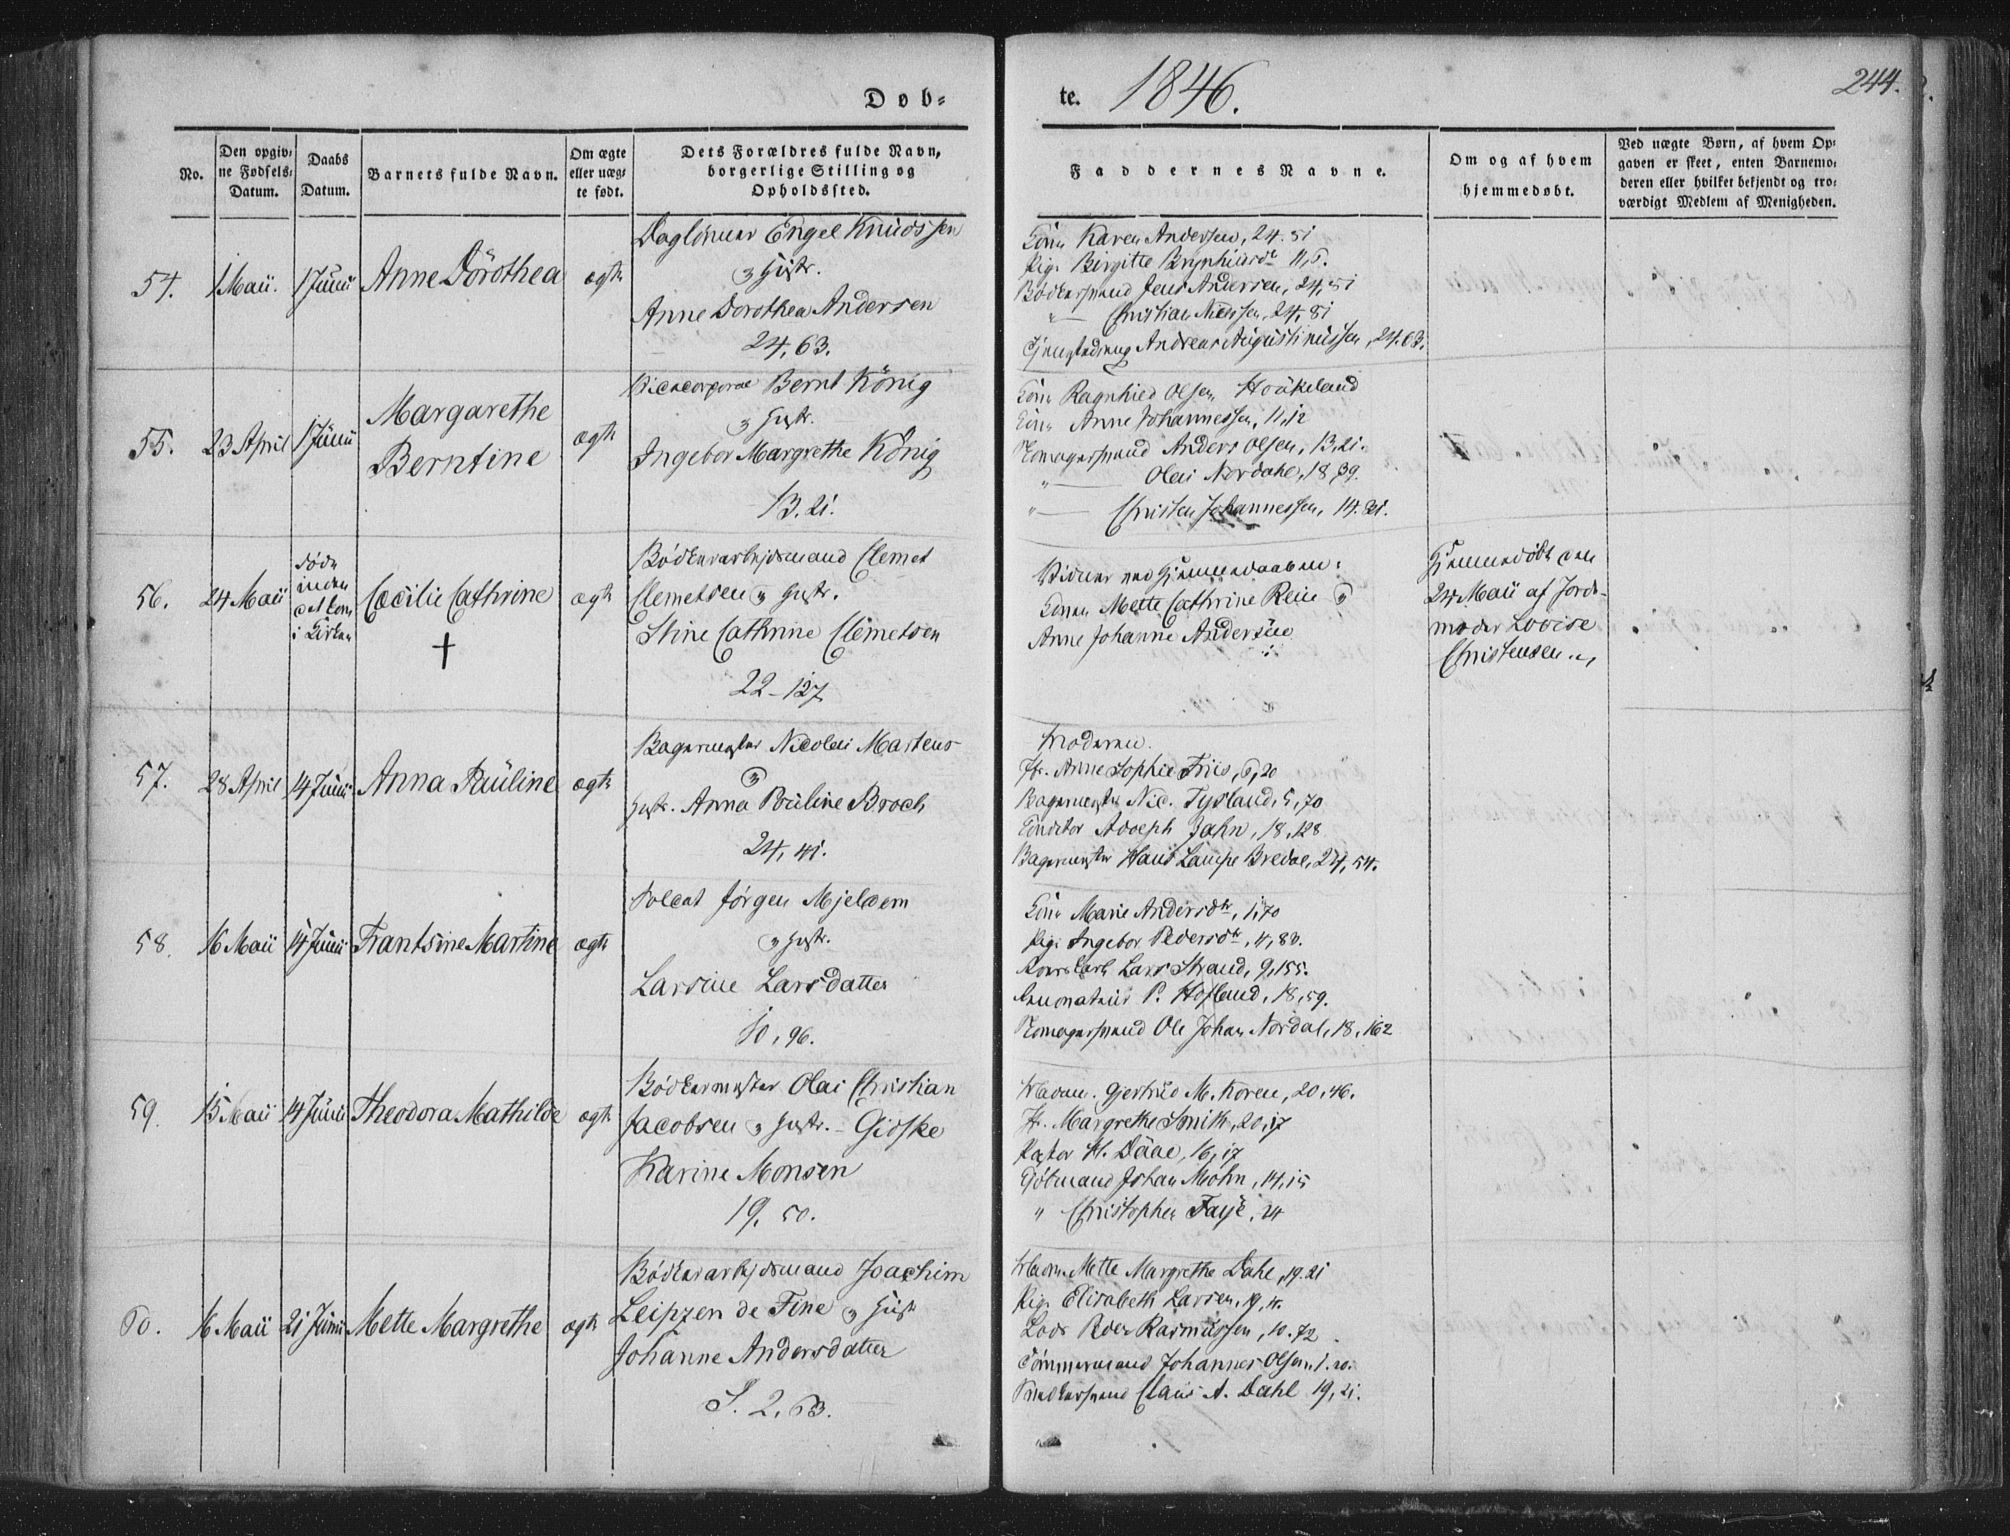 Døb-
te. 1846.
244.
No.
Den opgiv-
ne Fødsels-
Datum.
Daabs
Datum.
Barnets fulde Navn.
Om ægte
eller uæg-
te født.
Dets Forældres fulde Navn,
borgerlige Stilling og
Opholdssted.
Faddernes Navne.
Om og af hvem
hjemmedøbt.
Ved uægte Børn, af hvem Op-
gaven er skeet, enten Barnemo-
deren eller hvilket bekjendt og tro-
værdigt Medlem af Menigheden.
54.
1 Maii.
1 Junii
Anne Dorothea
ægte
Daglønner Engel Knudssen
og Hustr.
Anne Dorothea Andersen
24, 63.
Kone Karen Andersen, 24. 51
Pige Birgitte Brynhildsdr 11, 5.
Bødkersvend Jens Andersen, 24, 51
" Christian Nielssen, 24, 81
Andreas Augustinussen, 24. 63.
55.
23 April
1 Junii
Margarethe
Berntine
ægte
Vicecorporal Bernt König
og Hustr.
Ingebor Margrethe König
13. 21.
Kone Ragnhild Olsen Houkeland
Kone Anne Johannessen, 11, 12
Skomagersvend Anders Olsen, 13, 21.
" Olai Nordahl, 18, 39.
" Christen Johannessen, 14. 81.
56.
24 Maii
døde
inden
det kom
i Kirken
Cecilie Cathrine
†
ægte
Bødkerarbeidsmand Clemet
Clemetsen og Hustr.
Stine Cathrine Clemetsen
22 - 127
Vidner ved Hjemmedaaben:
Konen Mette Cathrine Rein og
Anne Johanne Andersen
Hjemmedøbt den
24 Maii af Jorde-
moder Lovise
Christensen
57.
28 April
14 Junii
Anna Pauline
ægte
Bagermester Nicolai Martens
og
Hustr. Anna Pouline Broch
24, 41.
Moderen.
Fr. Anne Sophie Friis, 6, 20
Bagermester Nic. Tysland, 5, 70
Conditor Adolph Jahn, 18, 128
Bagermester Hans Lampe Bredal, 24, 54.
58.
16 Maii
14 Junii
Frantsine Martine
ægte
Soldat Jørgen Mjeldem
og Hustr.
Larsine Larsdatter
10, 96.
Kone Marie Andersdtr, 1, 70
Pige Ingebor Pedersdtr, 4, 83.
Lars Strand, 9, 155.
P. Hofland, 18, 59.
Skomagersvend Ole Johan Nordal, 18, 162
59.
15 Maii
14 Junii
Theodora Mathilde
ægte
Bødkermester Olai Christian
Jacobsen og Hustr. - Gidske
Karine Monsen
19. 50.
Madm. Gjertrud M. Koren, 20, 46.
Fr. Margrethe Smith, 20, 17
Pastor H. Daae, 16, 17
Kjøbmand Johan Mohn, 14, 15
" Christopher Faye, 24
60.
16 Maii
21 Junii
Mette Margrethe
ægte
Bødkerarbeidsmand Joachim
Leipzen de Fine og Hustr
Johanne Andersdatter
S. 2, 63.
Madm. Mette Margrethe Dahl, 19. 21
Pige Elisabeth Larsen, 19, 4.
Lods Peder Rasmussen, 10. 72.
Tømmermand Johannes Olsen, 1. 20.
Claus A. Dahl 19, 21.